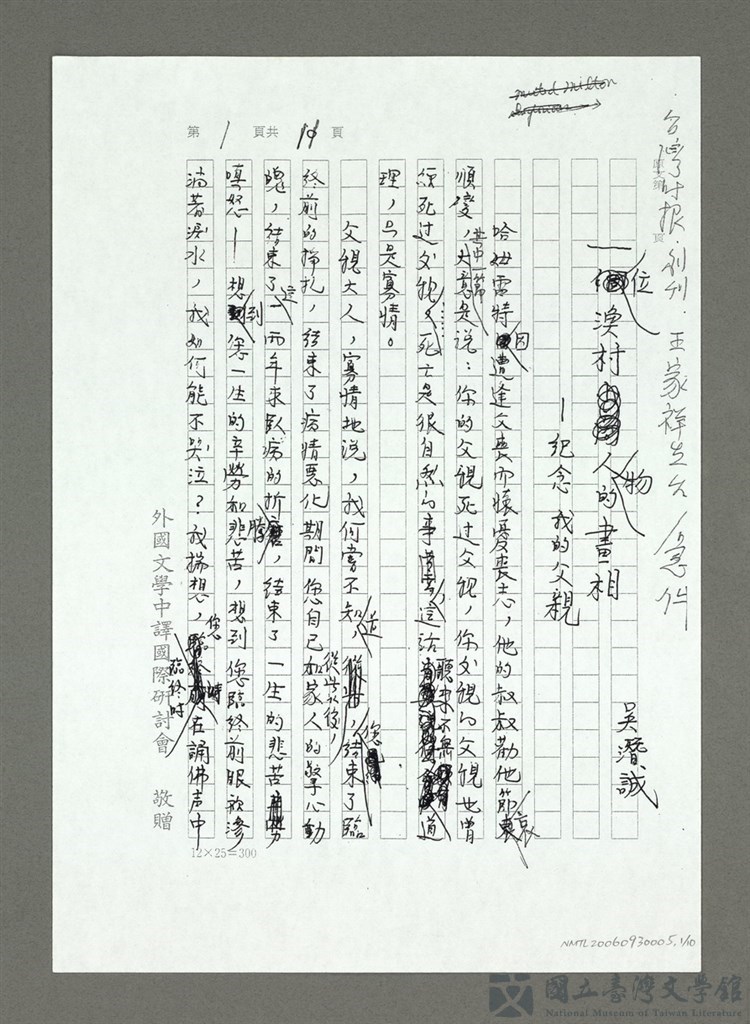 台灣時報·副刊·王家祥先生 急件
第 1 頁共 10 頁
一位漁村人物的畫相
—紀念我的父親
吳潛誠
哈姆雷特因遭逢父喪而懷憂喪志,他的叔叔勸他節哀
順變,其中一篇大意是說:你的父親死过父親,你父親的父親也曾
經死过父親,死亡是很自然的事,這話聽來不無道
理,只是寡情。
父親大人,寡情地說,我何嘗不知道,從此以後,您結束了臨
終前的掙扎,結束了病情惡化期間您自己和家人的擎心動
魄,結束了這一兩年來臥病的折騰,結束了一生的悲苦
嗔怒—想到您一生的辛勞和悲苦,想到您臨終前眼歛滲
淌著淚水,我如何能不哭泣?我揣想,您臨終時在誦佛声中
12×25=300
外國文學中譯國際研討會 敬贈
NMTL20060930005.1/10
國立臺灣文學館
National Museum of Taiwan Literature